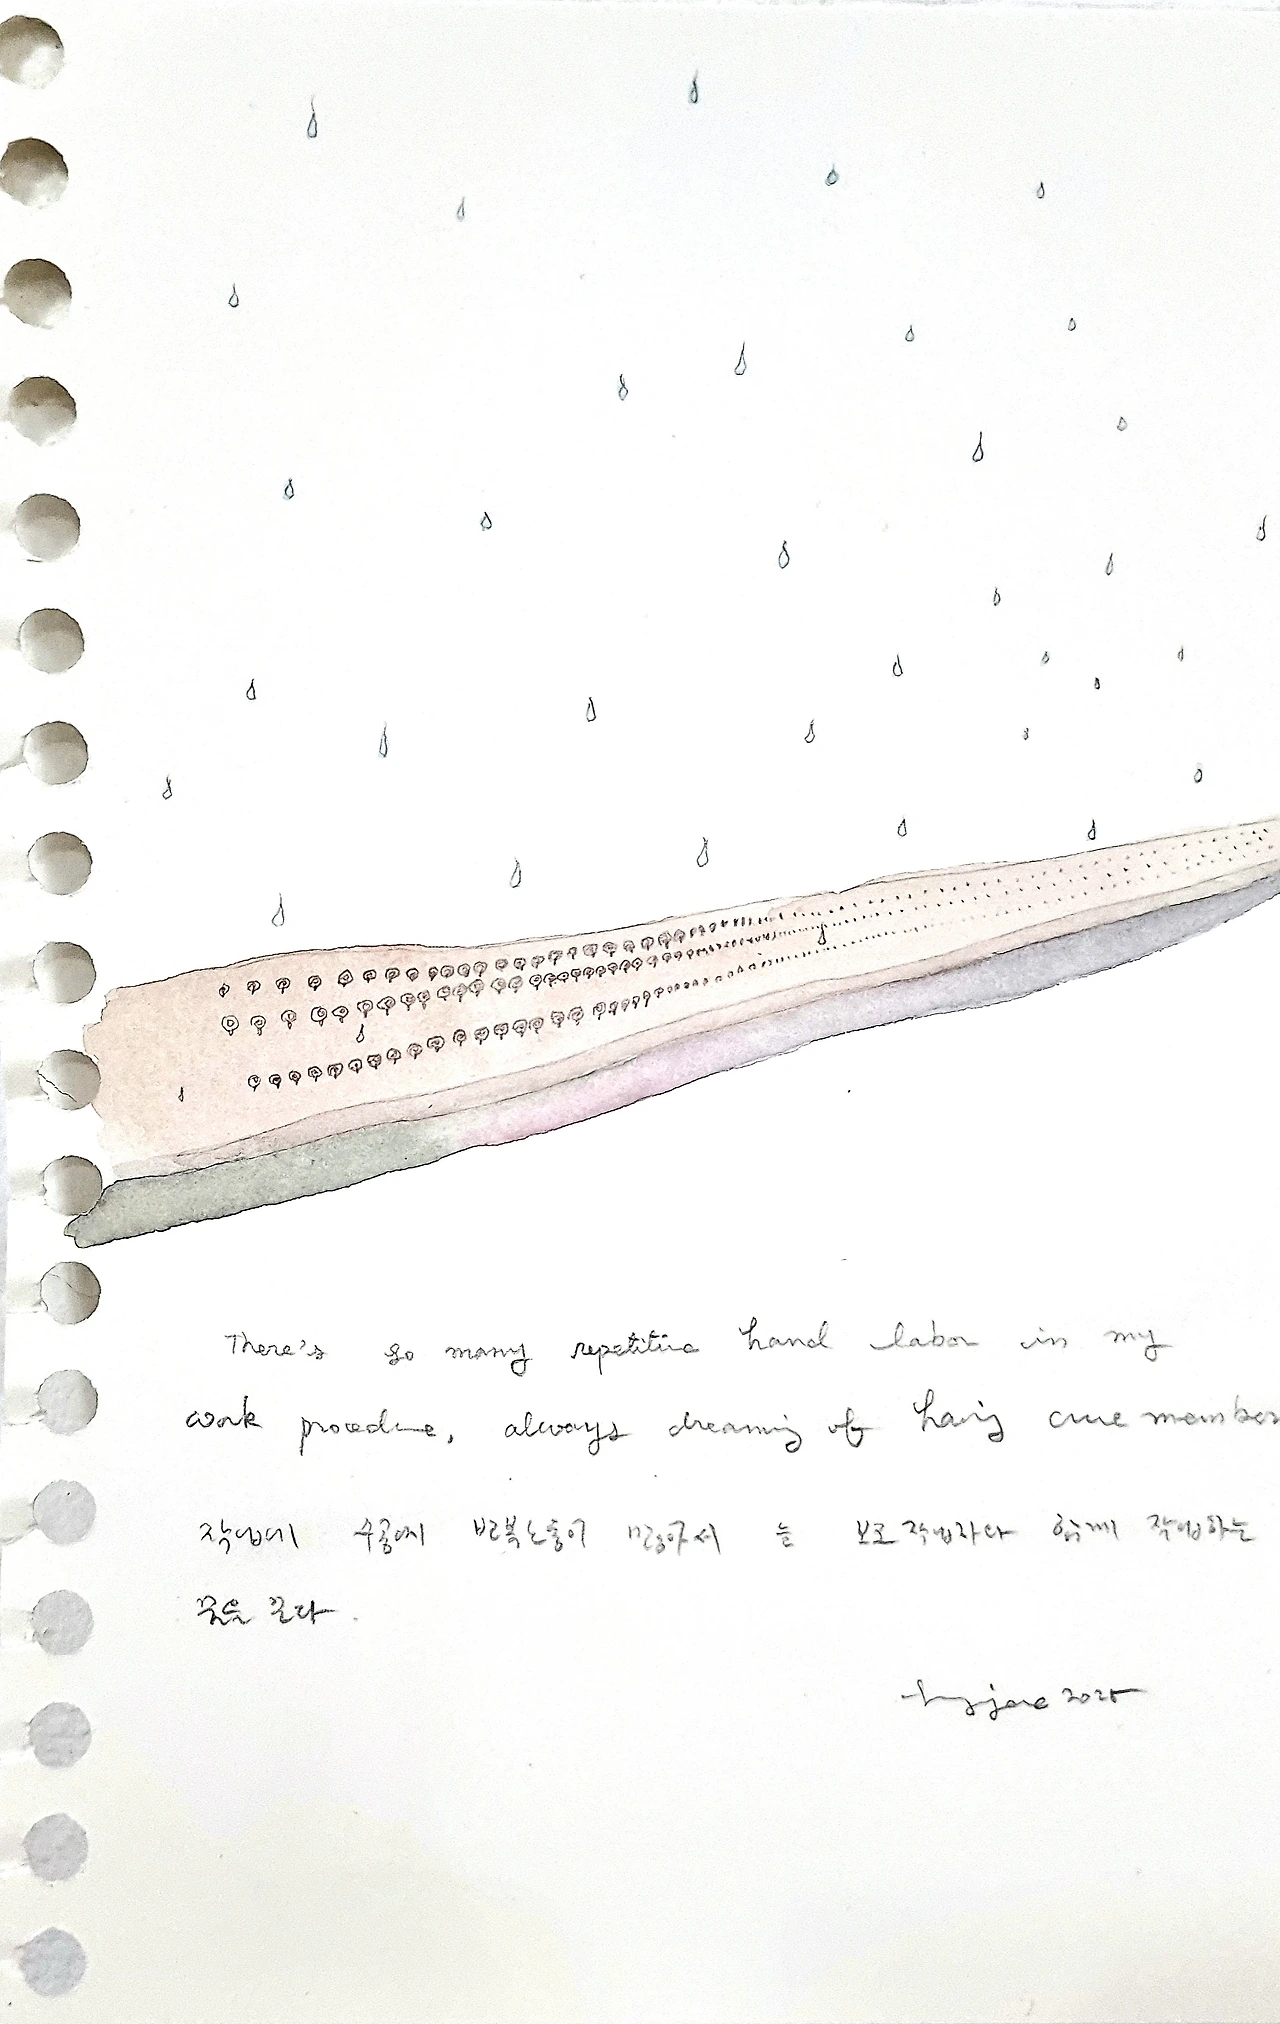 There's so many repetitive hand labor in my
work procedure, always dreaming of having crue member
작업에 수공예 반복노동이 많아서 늘 보조작업자와 함께 작업하는
꿈을 꾼다.
hyejeae 2025